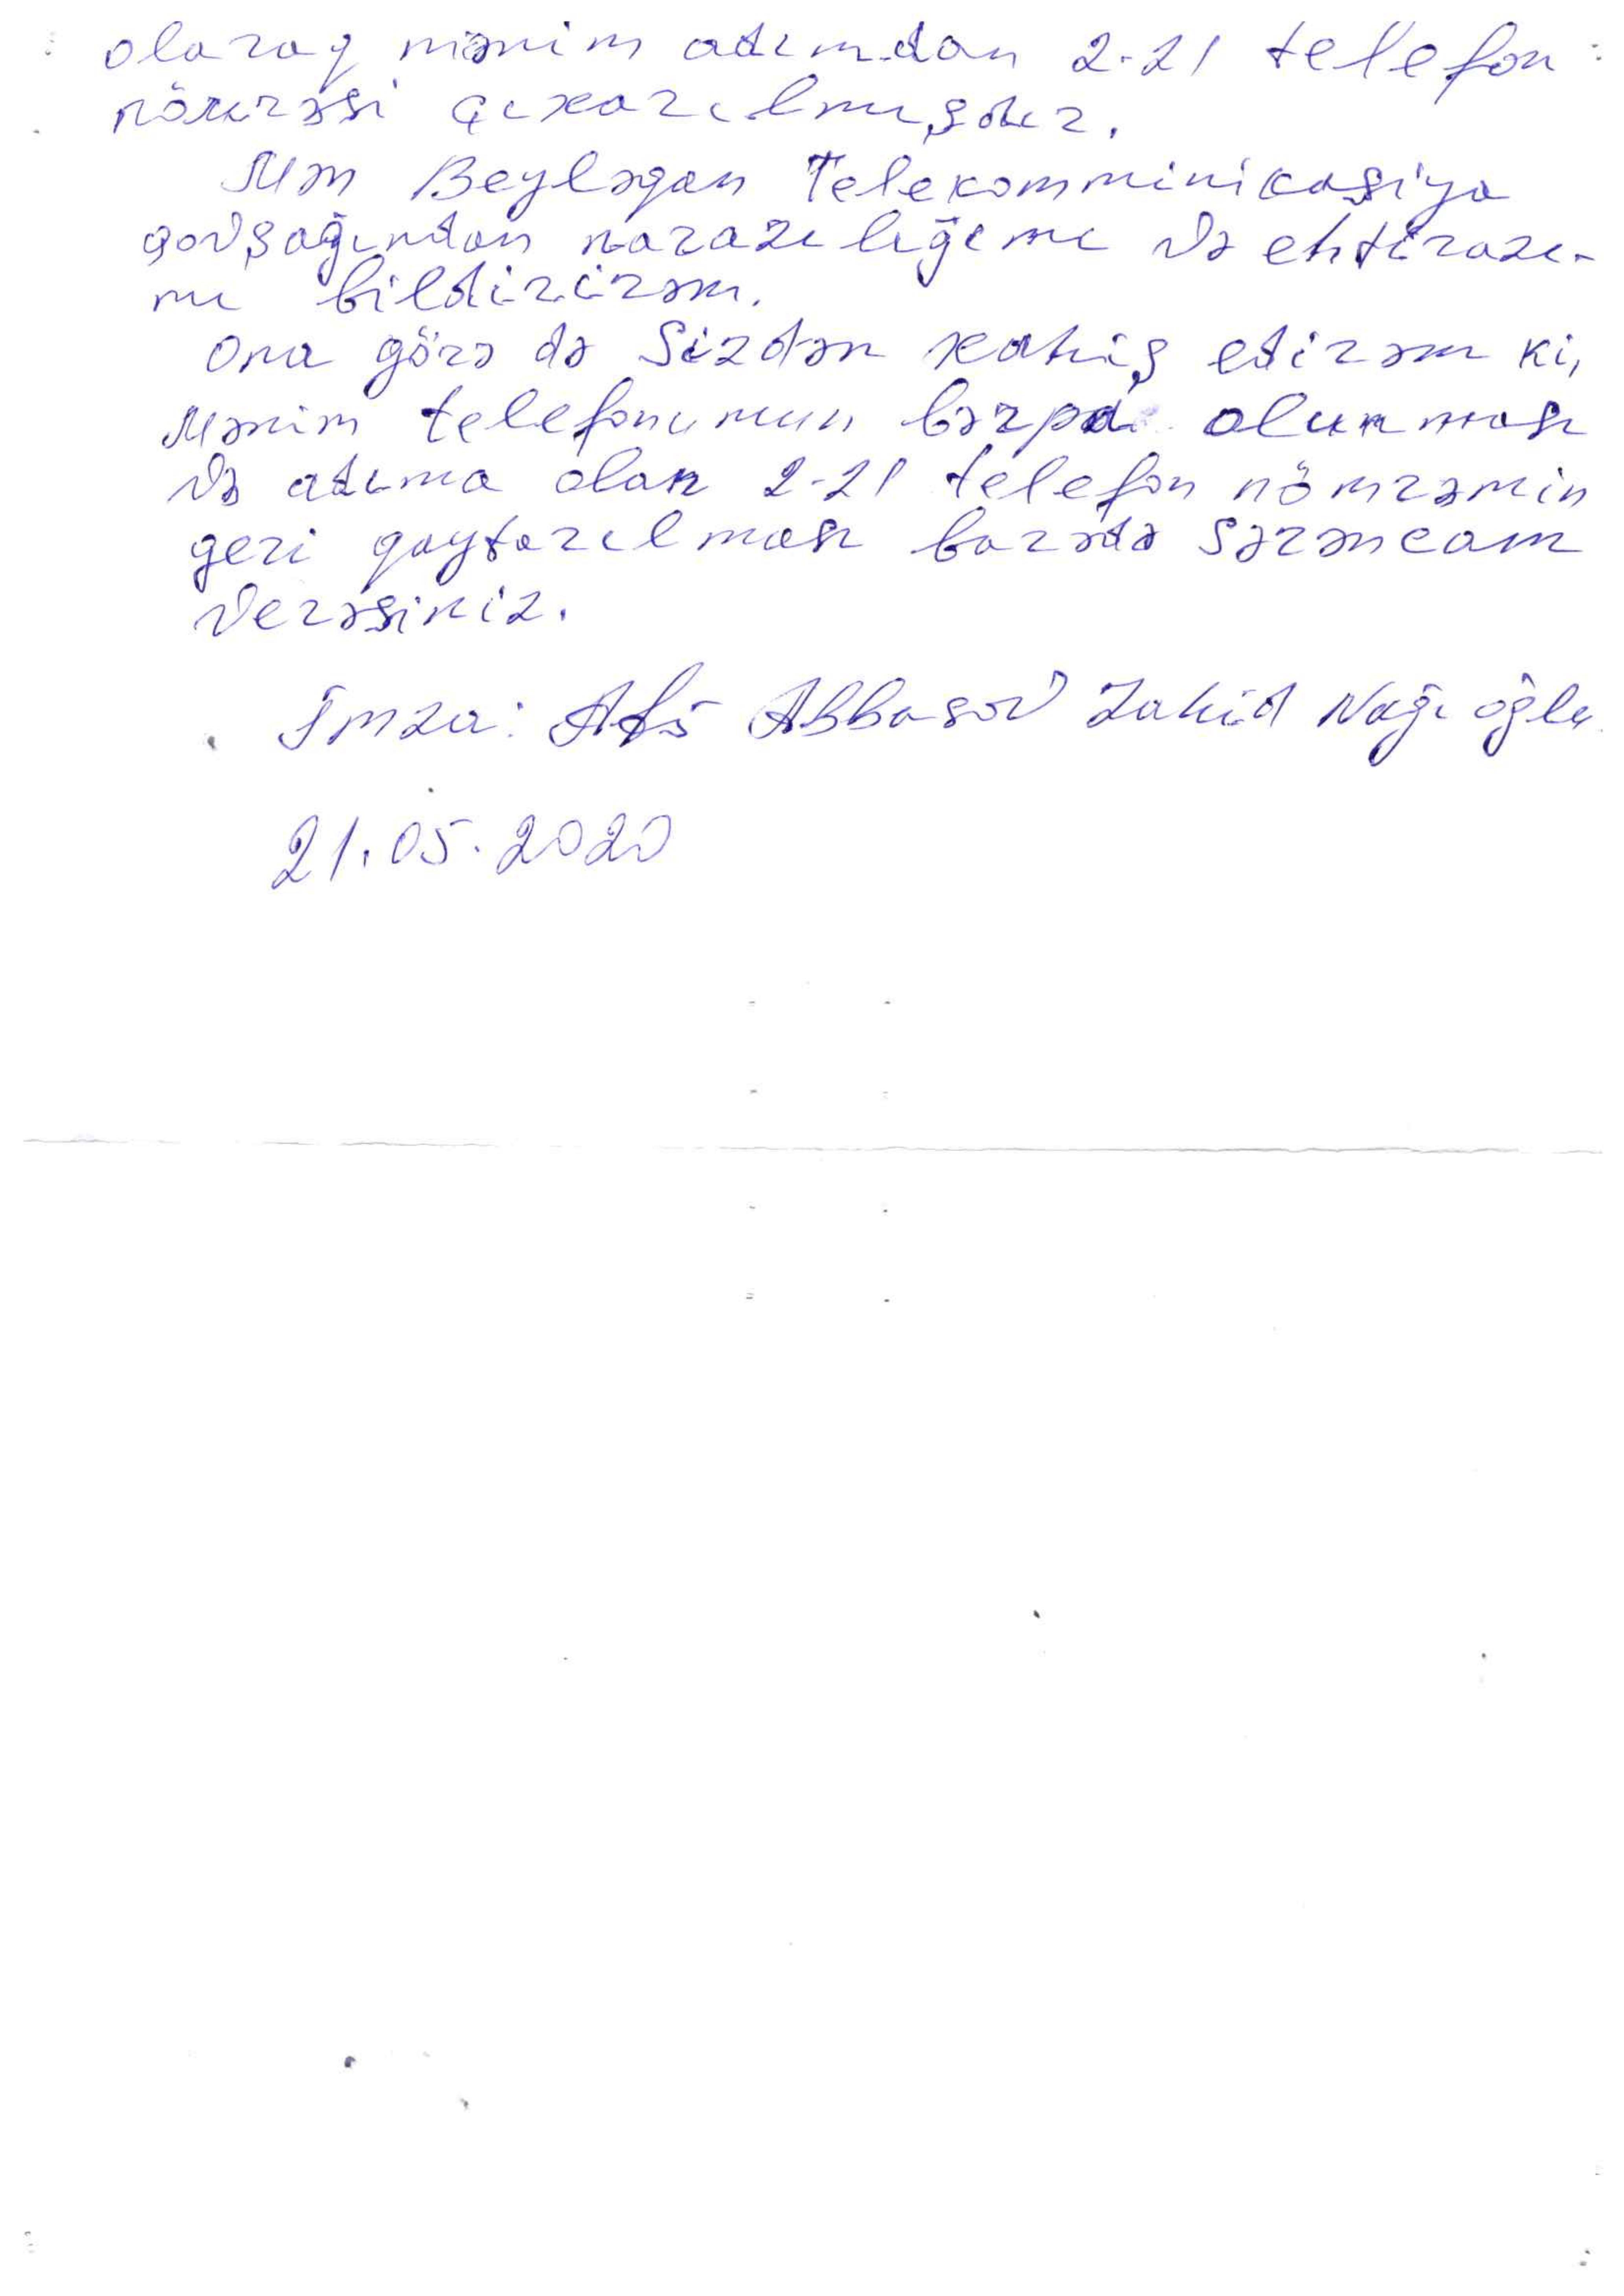 olaraq mənim adımdan 2-21 telefon
nömrəsi çıxarılmışdır.
Mən Beyləqan Telekomminikasiya
qovşağından narazılığımı və ehtirazı-
mı bildirirəm.
Ona görə də Sizdən xahiş edirəm ki,
Mənim telefonumun bərpa olunması
və adıma olan 2-21 telefon nömrəmin
geri qaytarılması barədə Sərəncam
verəsiniz.
İmza: Abbasov Zahid Nağı oğlu
21.05.2020